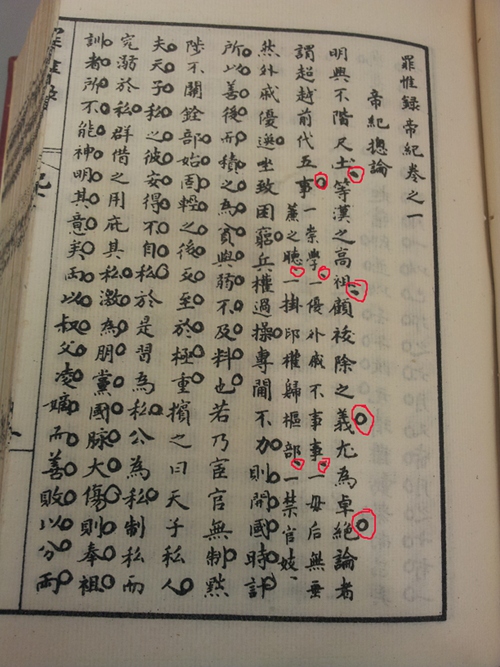 罪惟錄帝紀卷之一
帝紀總論
明興不階尺土等漢之高祖顧祓除之義尤為卓絕論者
謂超越前代五事一崇學一優外戚不事事一母后無垂
簾之聽一掛印權歸樞部一禁官妓、
然外戚優選坐致困窮兵權過操專閫不力則開國時計
所以善後而積之為貧與弱不及料也若乃宦官無制黜
陟不關銓部始固輕之後反至於極重擯之曰天子私人
夫天子私之彼安得不自私於是習為私公為私制私而
究溺於私群借之用庇其私激為朋黨國脈大傷則奉祖
訓者所不能神明其意矣而以叔父凌嫡而善敗以分兩